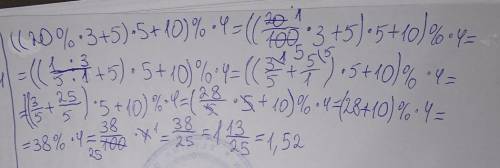 ((20%·3+5)·5+10)%·4=((20/100 1/5·3+5)·5+10)%·4=
=((1·3/5·1+5)·5+10)%·4=((3/5+5/1)·5+10)%·4=
=((3/5+25/5)·5+10)%·4=(28/5·5+10)%·4=(28+10)%·4=
=38%·4=38/100 25·4 1=38/25=1 13/25=1,52